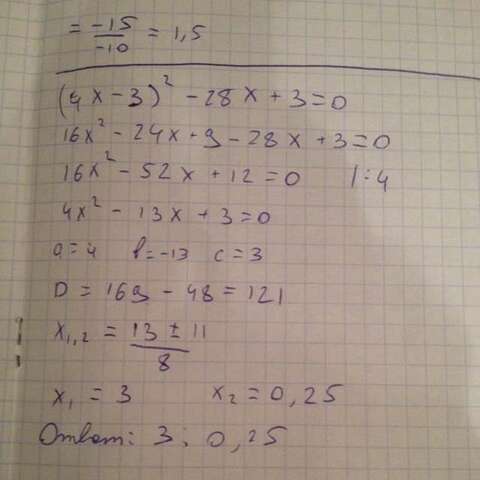 = -15/-10 = 1,5
(4x-3)² - 28x + 3 = 0
16x² - 24x + 9 - 28x + 3 = 0
16x² - 52x + 12 = 0 | : 4
4x² - 13x + 3 = 0
a = 4 b = -13 c = 3
D = 169 - 48 = 121
x₁,₂ = 13 ± 11 / 8
x₁ = 3 x₂ = 0,25
Ответ: 3; 0,25